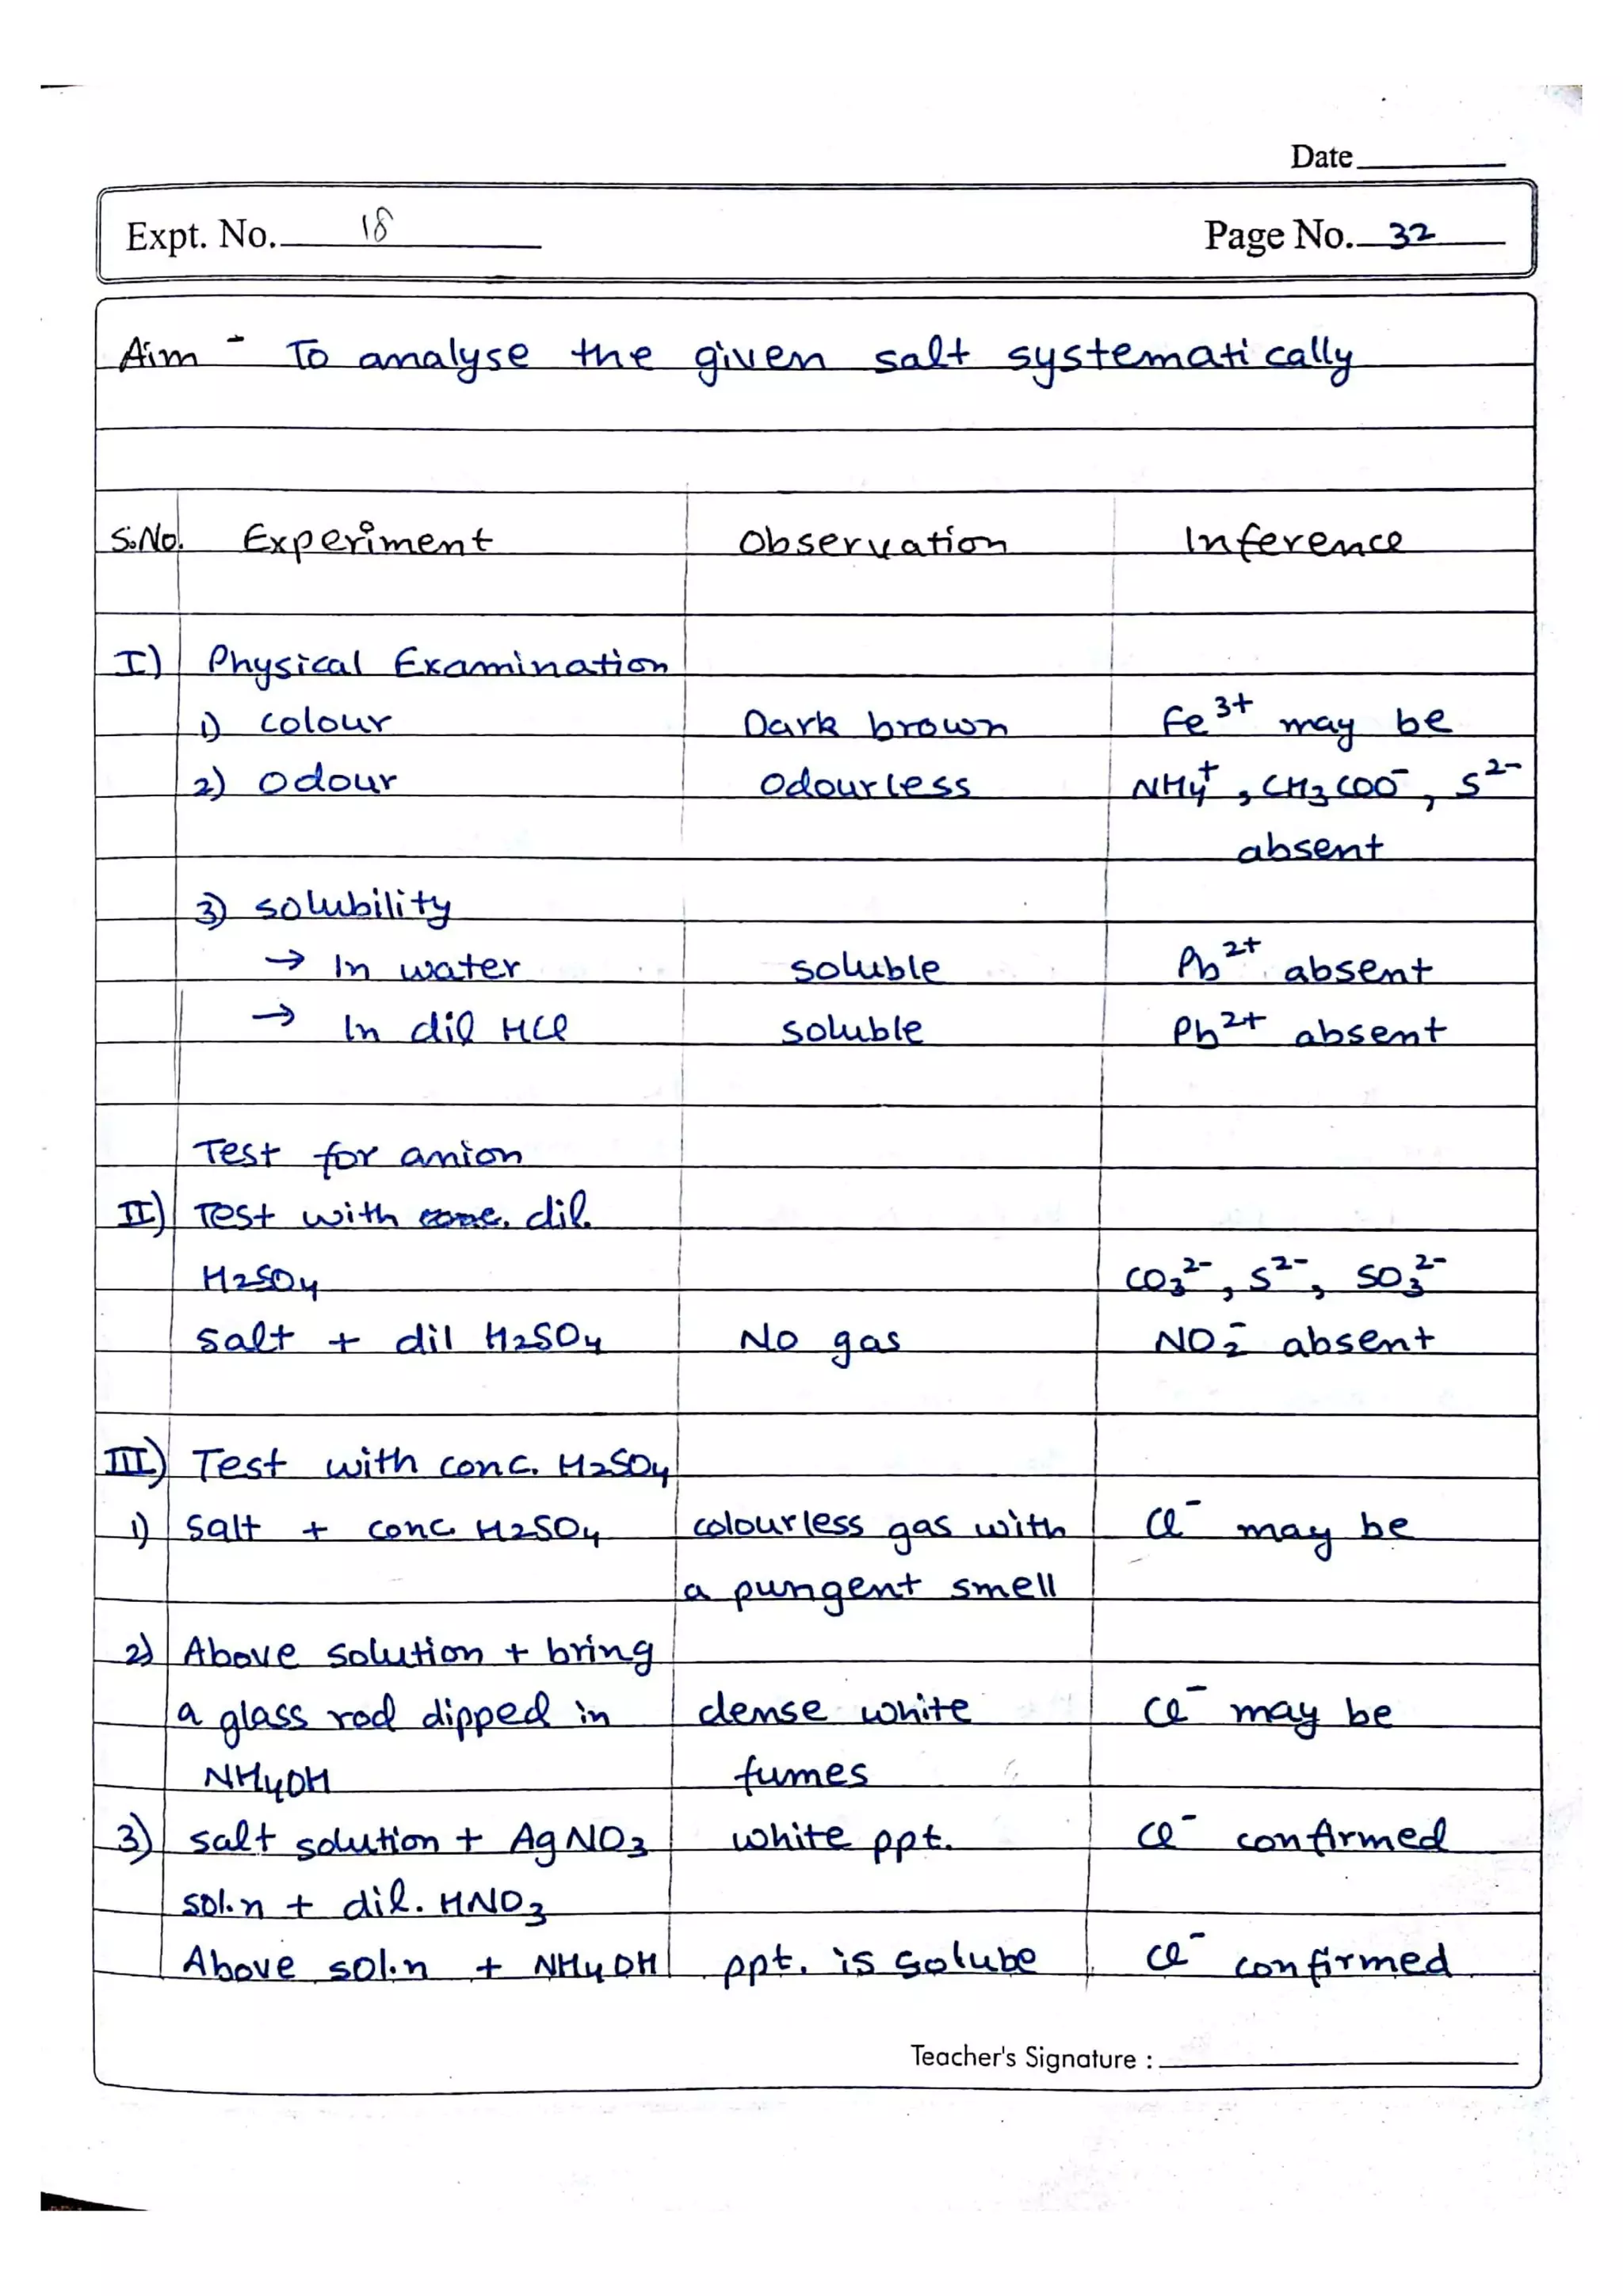 Date
Expt. No. 18 Page No. 32
Aim - To analyse the given salt systematically
S.No. Experiment Observation Inference
I) Physical Examination
1) colour Dark brown Fe³⁺ may be
2) Odour Odourless NH₄⁺, CH₃COO⁻, S²⁻
absent
3) solubility
→ In water soluble Pb²⁺ absent
→ In dil HCl soluble Pb²⁺ absent
Test for anion
II) Test with conc. dil.
H₂SO₄ CO₃²⁻, S²⁻, SO₃²⁻
salt + dil H₂SO₄ No gas NO₂⁻ absent
III) Test with conc. H₂SO₄
1) salt + conc H₂SO₄ colourless gas with Cl⁻ may be
a pungent smell
2) Above solution + bring
a glass rod dipped in dense white Cl⁻ may be
NH₄OH fumes
3) salt solution + AgNO₃ white ppt. Cl⁻ confirmed
sol.n + dil. HNO₃
Above sol.n + NH₄OH ppt. is solube Cl⁻ confirmed
Teacher's Signature :